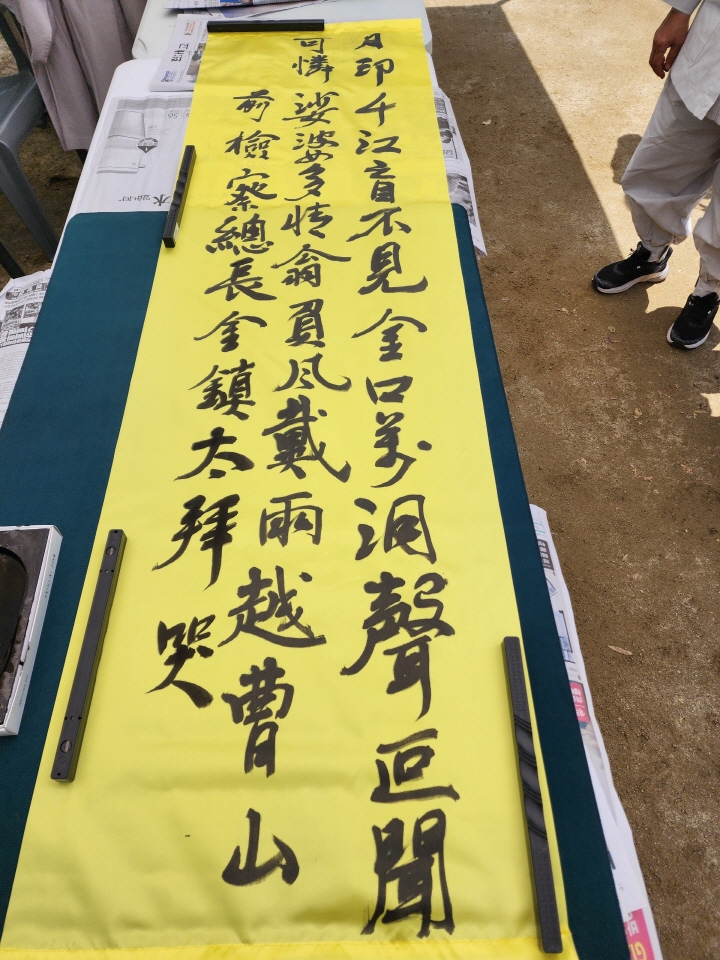 月印千江盲不見金口萬洞聲逈聞
可憐娑婆多情翁負风戴雨越曹山
前檢察總長金鎮太拜哭